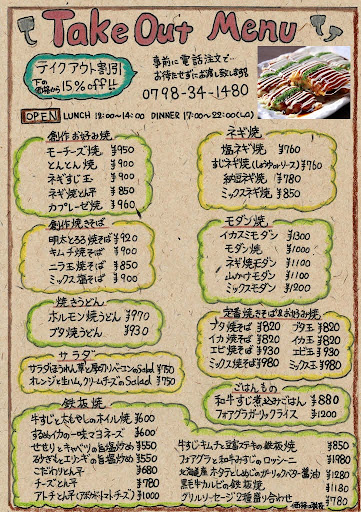 Take Out Menu
テイクアウト割引
下の価格から15%off!!
事前に電話注文で…
お待たせずにお渡し致します!!
0798-34-1480
OPEN LUNCH 12:00~14:00 DINNER 17:00~22:00(L.O)
創作お好み焼
モーチーズ焼 ¥950
とんとん焼 ¥900
ネギすじ玉 ¥900
ネギ焼とん平 ¥850
カプレーゼ焼 ¥960
創作焼きそば
明太とろろ焼そば ¥920
キムチ焼そば ¥900
ニラ玉焼そば ¥850
ミックス塩そば ¥900
焼きうどん
ホルモン焼うどん ¥970
ブタ焼うどん ¥930
サラダ
サラダほうれん草と厚切りベーコンのSalad ¥750
オレンジと生ハム、クリームチーズのSalad ¥750
鉄板焼
牛すじと大もやしのホイル焼 ¥600
するめイカの一味マヨネーズ ¥600
せせりとキャベツの旨塩炒め ¥550
みさぎとエリンギの旨塩炒め ¥550
こだわりとん平 ¥680
チーズとん平 ¥780
アトチとん平(アボカドトマトチーズ) ¥1000
ネギ焼
塩ネギ焼 ¥760
すじネギ焼(しょうゆorソース) ¥760
納豆ネギ焼 ¥780
ミックスネギ焼 ¥850
モダン焼
イカスミモダン ¥1300
モダン焼 ¥1000
ネギ焼モダン ¥1100
山かけモダン ¥1100
ミックスモダン ¥1200
定番焼きそば&お好み焼
ブタ焼そば ¥820 ブタ玉 ¥820
イカ焼そば ¥820 イカ玉 ¥820
エビ焼そば ¥930 エビ玉 ¥930
ミックス焼そば ¥980 ミックス玉 ¥980
ごはんもの
和牛すじ煮込みごはん ¥880
フォアグラガーリックライス ¥1200
牛すじキムチと豆富ステーキの鉄板焼 ¥850
フォアグラと和牛すじみのロッシーニ ¥1980
北海道産ホタテとしめじのガーリックバター醤油 ¥1280
黒毛和牛カルビの鉄板焼 ¥1180
グリルソーセージ2種盛り合わせ ¥780